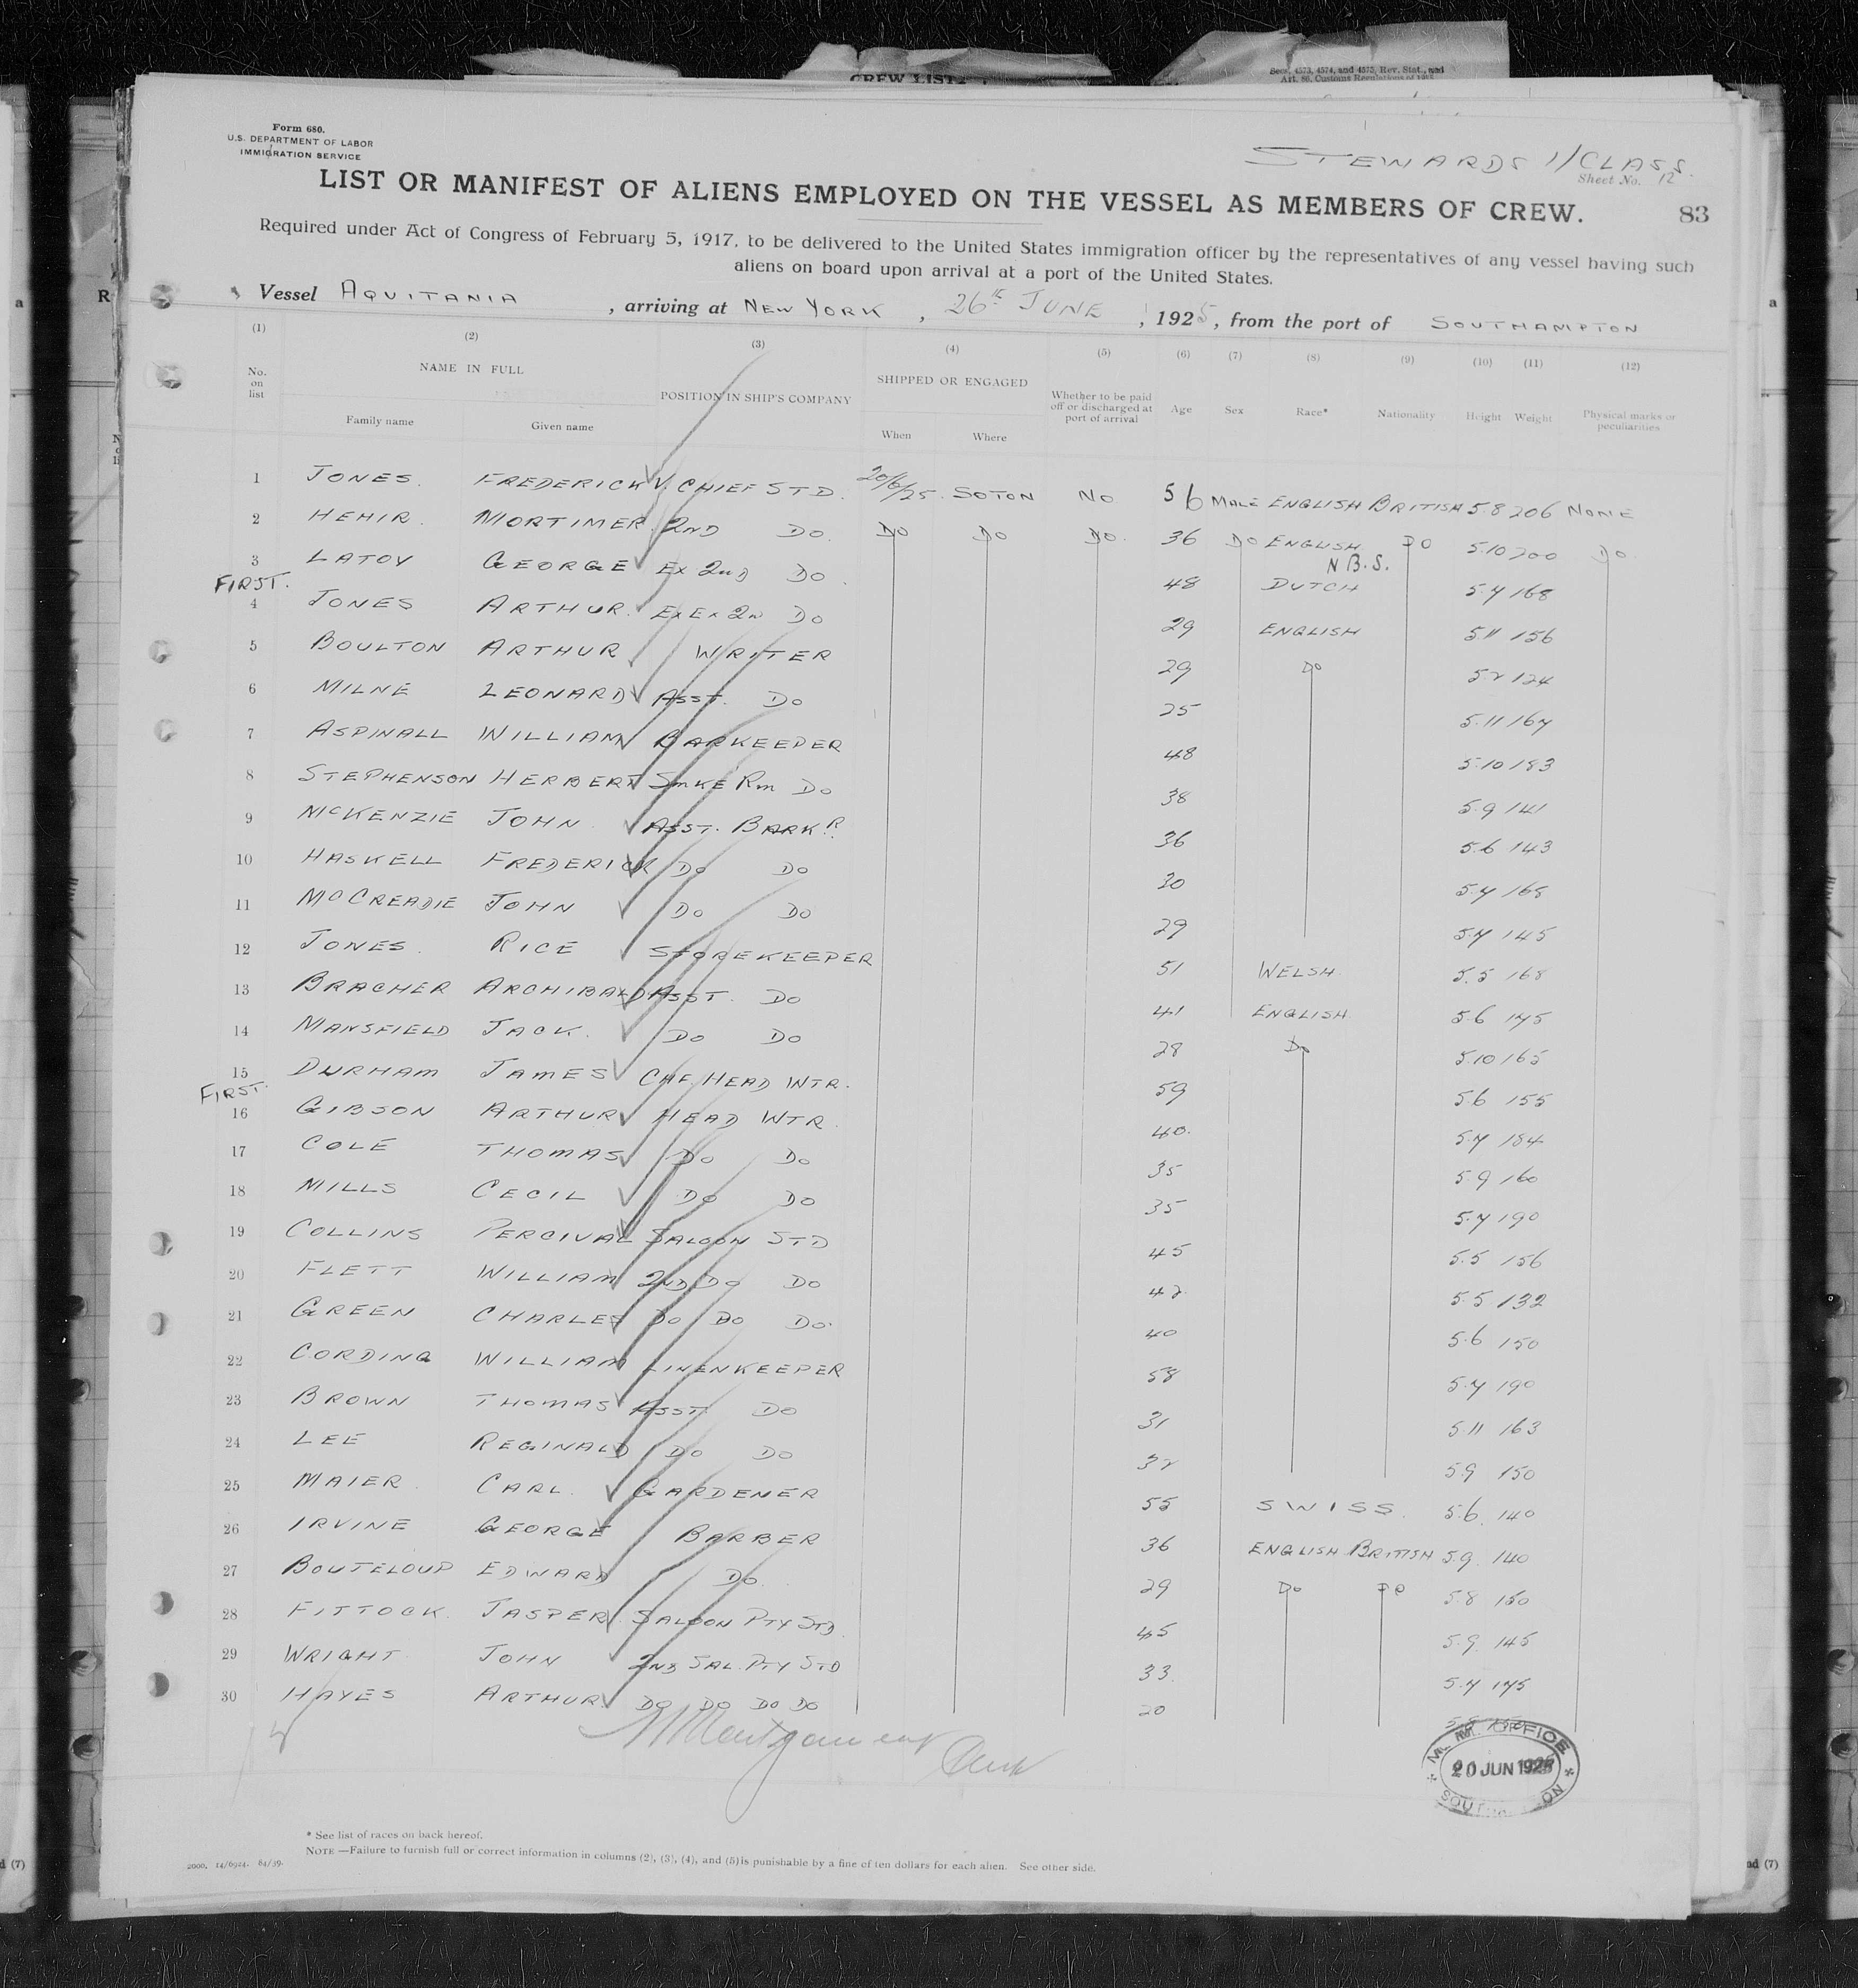 CREW LIST
Secs. 4573, 4574, and 4575, Rev. Stat., and
Art. 86, Customs Regulations of
Form 680.
U.S. DEPARTMENT OF LABOR
IMMIGRATION SERVICE
STEWARDS 1/CLASS.
Sheet No. 12
LIST OR MANIFEST OF ALIENS EMPLOYED ON THE VESSEL AS MEMBERS OF CREW.
83
Required under Act of Congress of February 5, 1917, to be delivered to the United States immigration officer by the representatives of any vessel having such
aliens on board upon arrival at a port of the United States.
Vessel AQUITANIA, arriving at NEW YORK, 26TH JUNE, 1925, from the port of SOUTHAMPTON
(1) (2) (3) (4) (5) (6) (7) (8) (9) (10) (11) (12)
No. on list NAME IN FULL POSITION IN SHIP'S COMPANY SHIPPED OR ENGAGED Whether to be paid off or discharged at port of arrival Age Sex Race* Nationality Height Weight Physical marks or peculiarities
Family name Given name When Where
1 JONES. FREDERICK V. CHIEF STD. 20/6/25. SOTON NO 56 MALE ENGLISH BRITISH 5.8 206 NONE
2 HEHIR. MORTIMER. 2ND DO. DO DO DO. 36 DO ENGLISH DO 5.10 200 DO
N.B.S.
3 LATOY GEORGE EX 2ND DO. 48 DUTCH 5.7 168
FIRST.
4 JONES ARTHUR. EX EX 2ND DO 29 ENGLISH 5.11 156
5 BOULTON ARTHUR WRITER 29 DO 5.2 124
6 MILNE LEONARD ASST. DO 25 5.11 167
7 ASPINALL WILLIAM BARKEEPER 48 5.10 183
8 STEPHENSON HERBERT SMKE RM DO 38 5.9 141
9 MCKENZIE JOHN ASST. BARKR. 36 5.6 143
10 HASKELL FREDERICK DO DO 30 5.7 168
11 MCCREADIE JOHN DO DO 29 5.7 145
12 JONES. RICE STOREKEEPER 51 WELSH. 5.5 168
13 BRACHER ARCHIBALD ASST. DO 41 ENGLISH. 5.6 175
14 MANSFIELD JACK. DO DO 28 DO 5.10 165
15 DURHAM JAMES CHF. HEAD WTR. 59 5.6 155
FIRST.
16 GIBSON ARTHUR HEAD WTR. 40. 5.7 184
17 COLE THOMAS DO DO 35 5.9 160
18 MILLS CECIL DO DO 35 5.7 190
19 COLLINS PERCIVAL SALOON STD 45 5.5 156
20 FLETT WILLIAM 2ND DO DO 42 5.5 132
21 GREEN CHARLES DO DO DO. 40 5.6 150
22 CORDING WILLIAM LINENKEEPER 58 5.7 190
23 BROWN THOMAS ASST. DO 31 5.11 163
24 LEE REGINALD DO DO 32 5.9 150
25 MAIER. CARL. GARDENER 55 SWISS. 5.6. 140
26 IRVINE GEORGE BARBER 36 ENGLISH BRITISH 5.9. 140
27 BOUTELOUP EDWARD DO 29 DO DO 5.8 150
28 FITTOCK. JASPER. SALOON PTY STD. 45 5.9. 145
29 WRIGHT JOHN 2ND SAL. PTY STD 33. 5.7 175
30 HAYES ARTHUR DO DO DO DO 20
20 JUN 1925
OFFICE
* See list of races on back hereof.
NOTE—Failure to furnish full or correct information in columns (2), (3), (4), and (5) is punishable by a fine of ten dollars for each alien. See other side.
2000. 14/6924. 84/39.